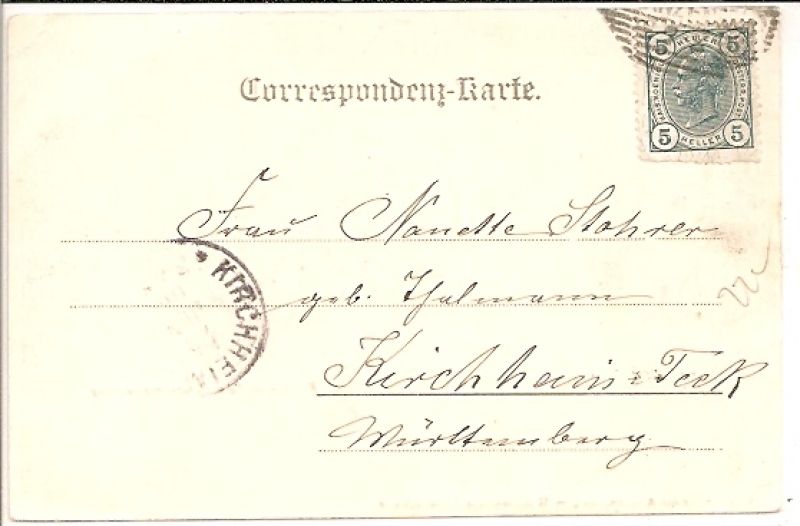 5 HELLER 5
5 HELLER 5
Correspondenz-Karte.
Frau Nanette Stohrer
geb. Thalmann
KIRCHHEI
Kirchheim-Teck
Württemberg